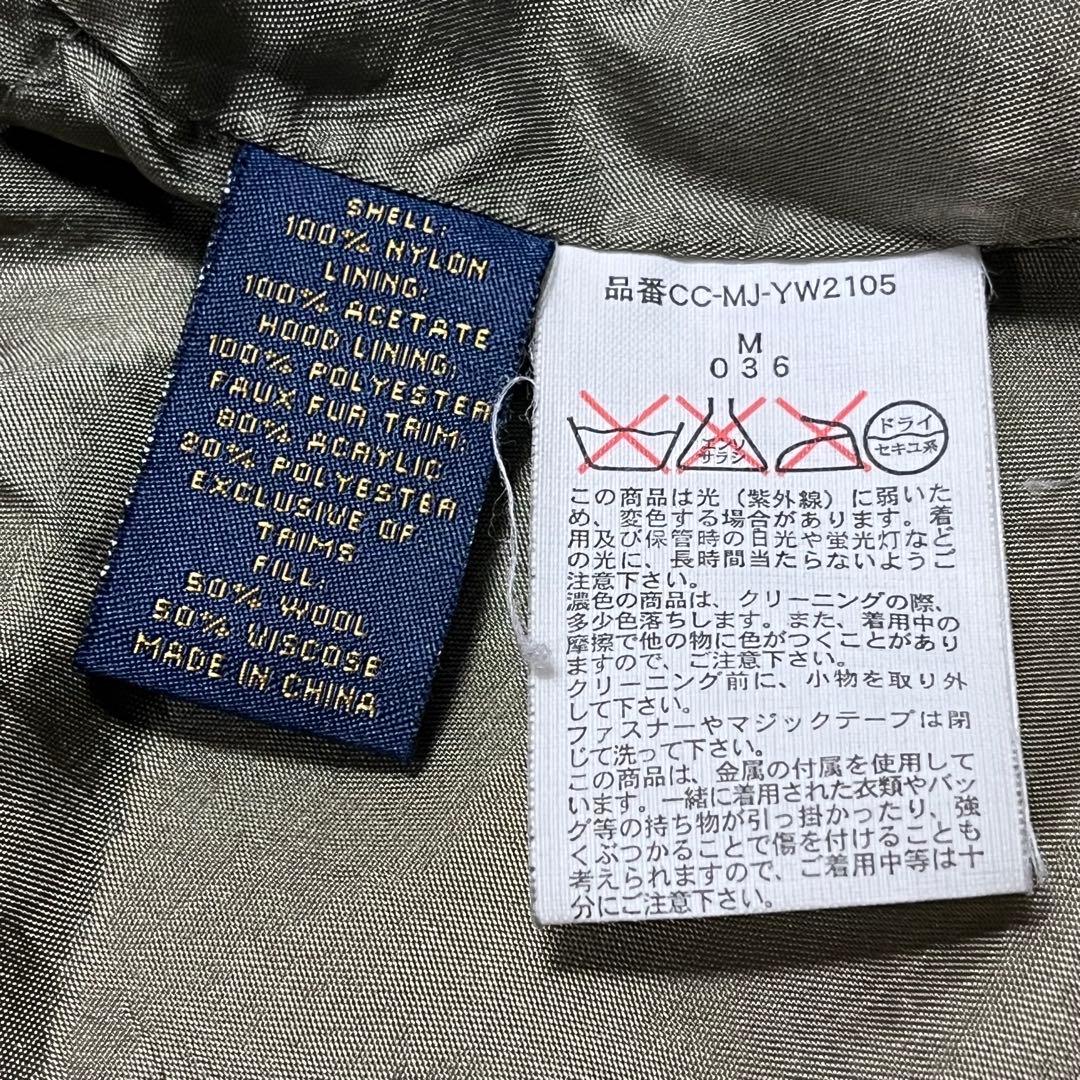 SHELL:
100% NYLON
LINING:
100% ACETATE
HOOD LINING:
100% POLYESTER
FAUX FUR TRIM:
80% ACRYLIC
20% POLYESTER
EXCLUSIVE OF
TRIMS
FILL:
50% WOOL
50% VISCOSE
MADE IN CHINA
品番CC-MJ-YW2105
M
036
エンソ
サラシ
ドライ
セキユ系
この商品は光（紫外線）に弱いた
め、変色する場合があります。着
用及び保管時の日光や蛍光灯など
の光に、長時間当たらないようご
注意下さい。
濃色の商品は、クリーニングの際、
多少色落ちします。また、着用中の
摩擦で他の物に色がつくことがあり
ますので、ご注意下さい。
クリーニング前に、小物を取り外
して下さい。
ファスナーやマジックテープは閉
じて洗って下さい。
この商品は、金属の付属を使用して
います。一緒に着用された衣類やバッ
グ等の持ち物が引っ掛かったり、強
くぶつかることで傷を付けることも
考えられますので、ご着用中等は十
分にご注意下さい。